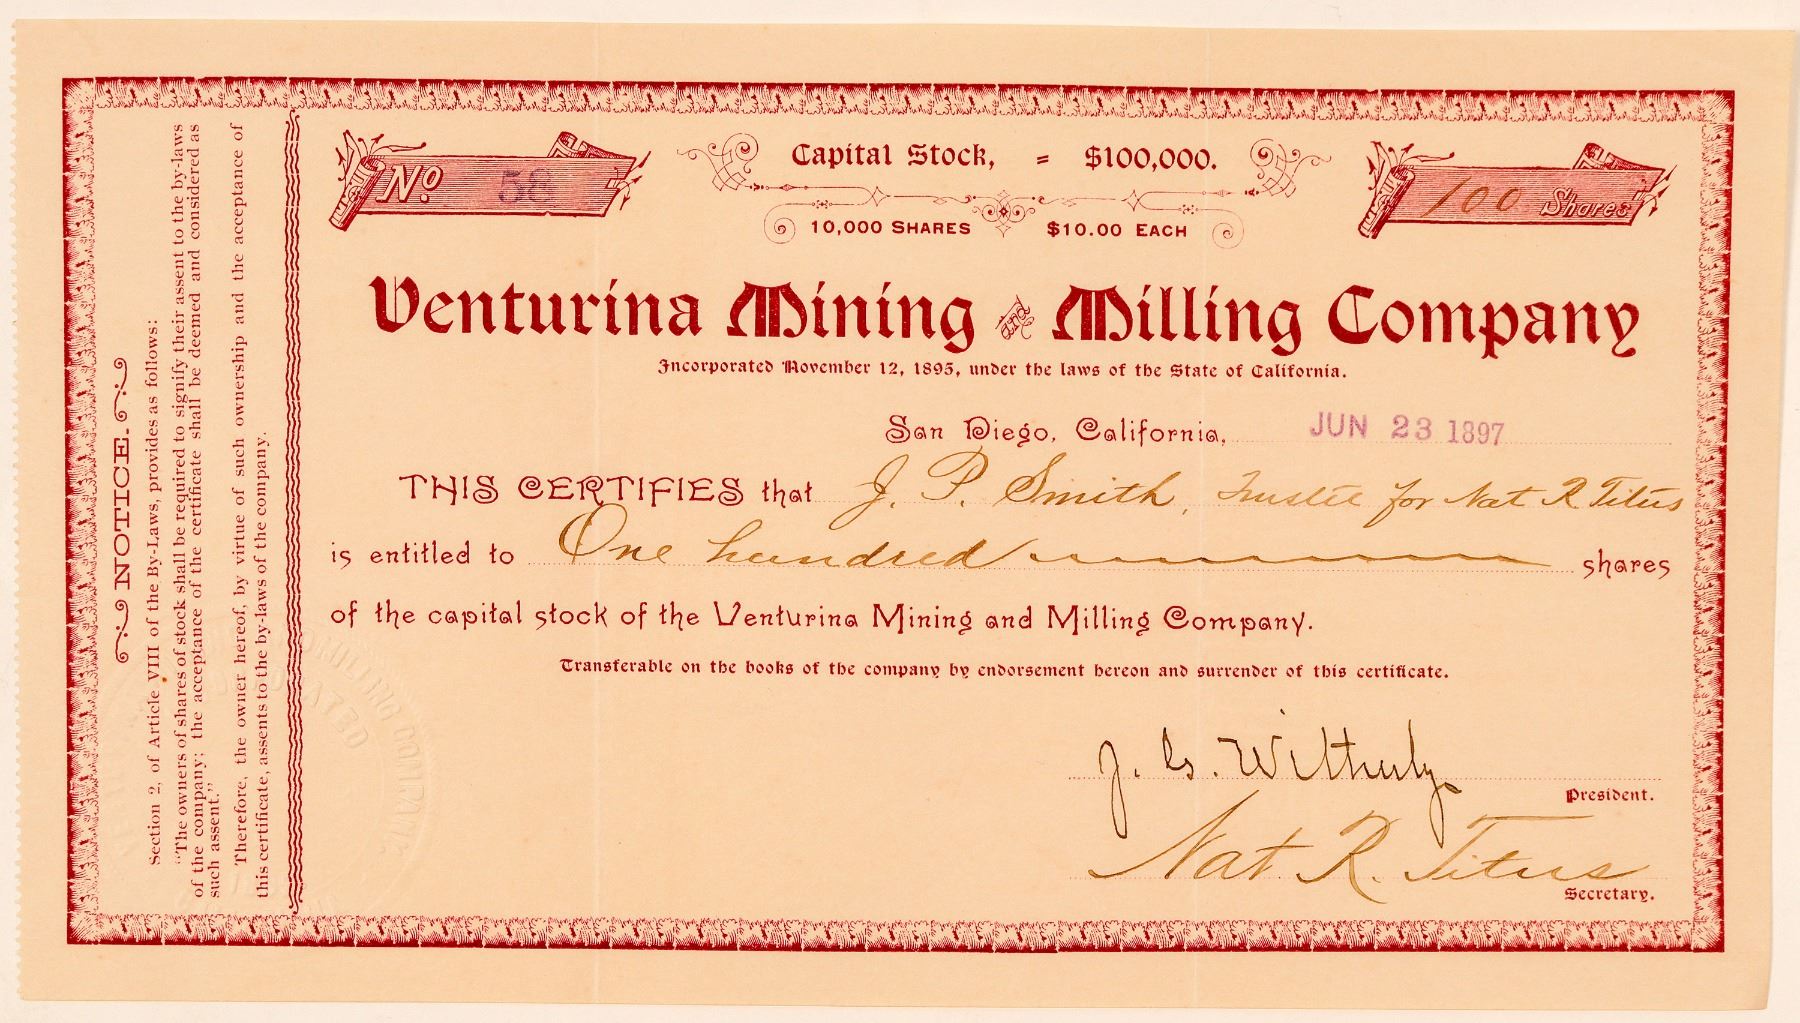 No 58
Capital Stock, = $100,000.
100 Shares
10,000 SHARES $10.00 EACH
Venturina Mining and Milling Company
Incorporated November 12, 1895, under the laws of the State of California.
San Diego, California, JUN 23 1897
THIS CERTIFIES that J. P. Smith, Trustee for Nat R Titus
is entitled to One hundred shares
of the capital stock of the Venturina Mining and Milling Company.
Transferable on the books of the company by endorsement hereon and surrender of this certificate.
J. G. Witherby
President.
Nat. R. Titus
Secretary.
NOTICE.
Section 2, of Article VIII of the By-Laws, provides as follows:
"The owners of shares of stock shall be required to signify their assent to the by-laws
of the company; the acceptance of the certificate shall be deemed and considered as
such assent."
Therefore, the owner hereof, by virtue of such ownership and the acceptance of
this certificate, assents to the by-laws of the company.
MILLING COMPANY